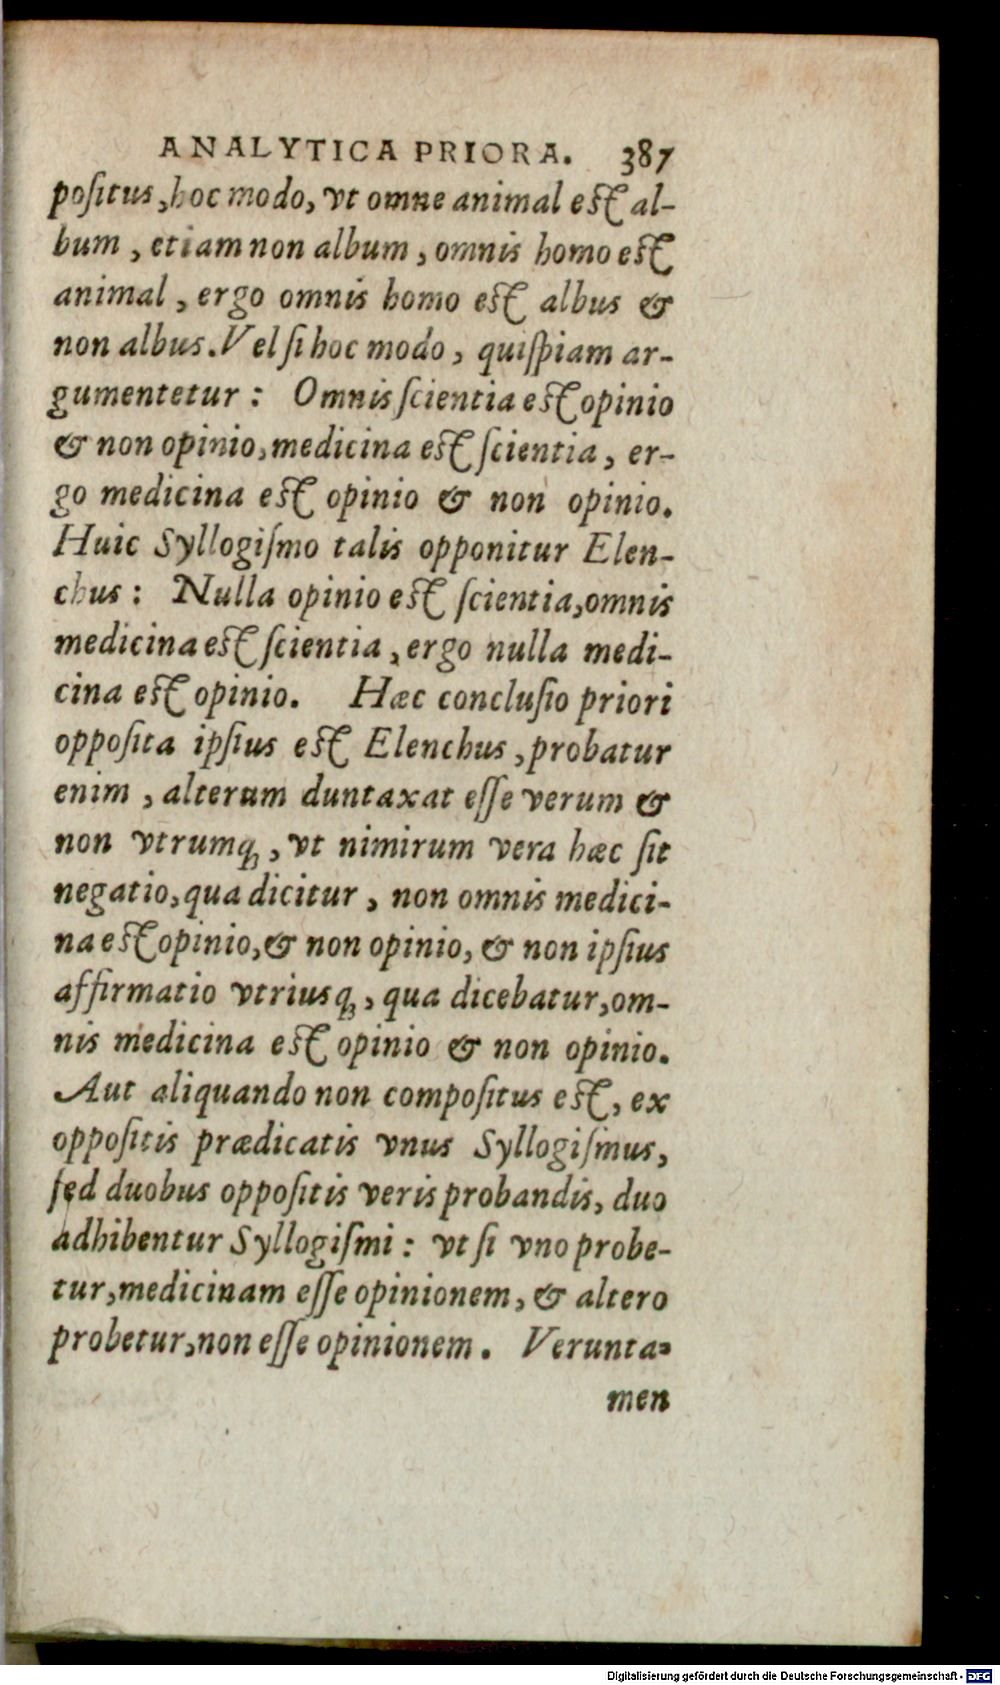 ANALYTICA PRIORA. 387
poſitus, hoc modo, vt omne animal eſt al-
bum, etiam non album, omnis homo eſt
animal, ergo omnis homo eſt albus &
non albus. Vel ſi hoc modo, quiſpiam ar-
gumentetur: Omnis ſcientia eſt opinio
& non opinio, medicina eſt ſcientia, er-
go medicina eſt opinio & non opinio.
Huic Syllogiſmo talis opponitur Elen-
chus: Nulla opinio eſt ſcientia, omnis
medicina eſt ſcientia, ergo nulla medi-
cina eſt opinio. Hæc concluſio priori
oppoſita ipſius eſt Elenchus, probatur
enim, alterum duntaxat eſſe verum &
non vtrumq́;, vt nimirum vera hæc ſit
negatio, qua dicitur, non omnis medici-
na eſt opinio, & non opinio, & non ipſius
affirmatio vtriusq́;, qua dicebatur, om-
nis medicina eſt opinio & non opinio.
Aut aliquando non compoſitus eſt, ex
oppoſitis prædicatis vnus Syllogiſmus,
ſed duobus oppoſitis veris probandis, duo
adhibentur Syllogiſmi: vt ſi vno probe-
tur, medicinam eſſe opinionem, & altero
probetur, non eſſe opinionem. Verunta-
men
Digitalisierung gefördert durch die Deutsche Forschungsgemeinschaft - DFG